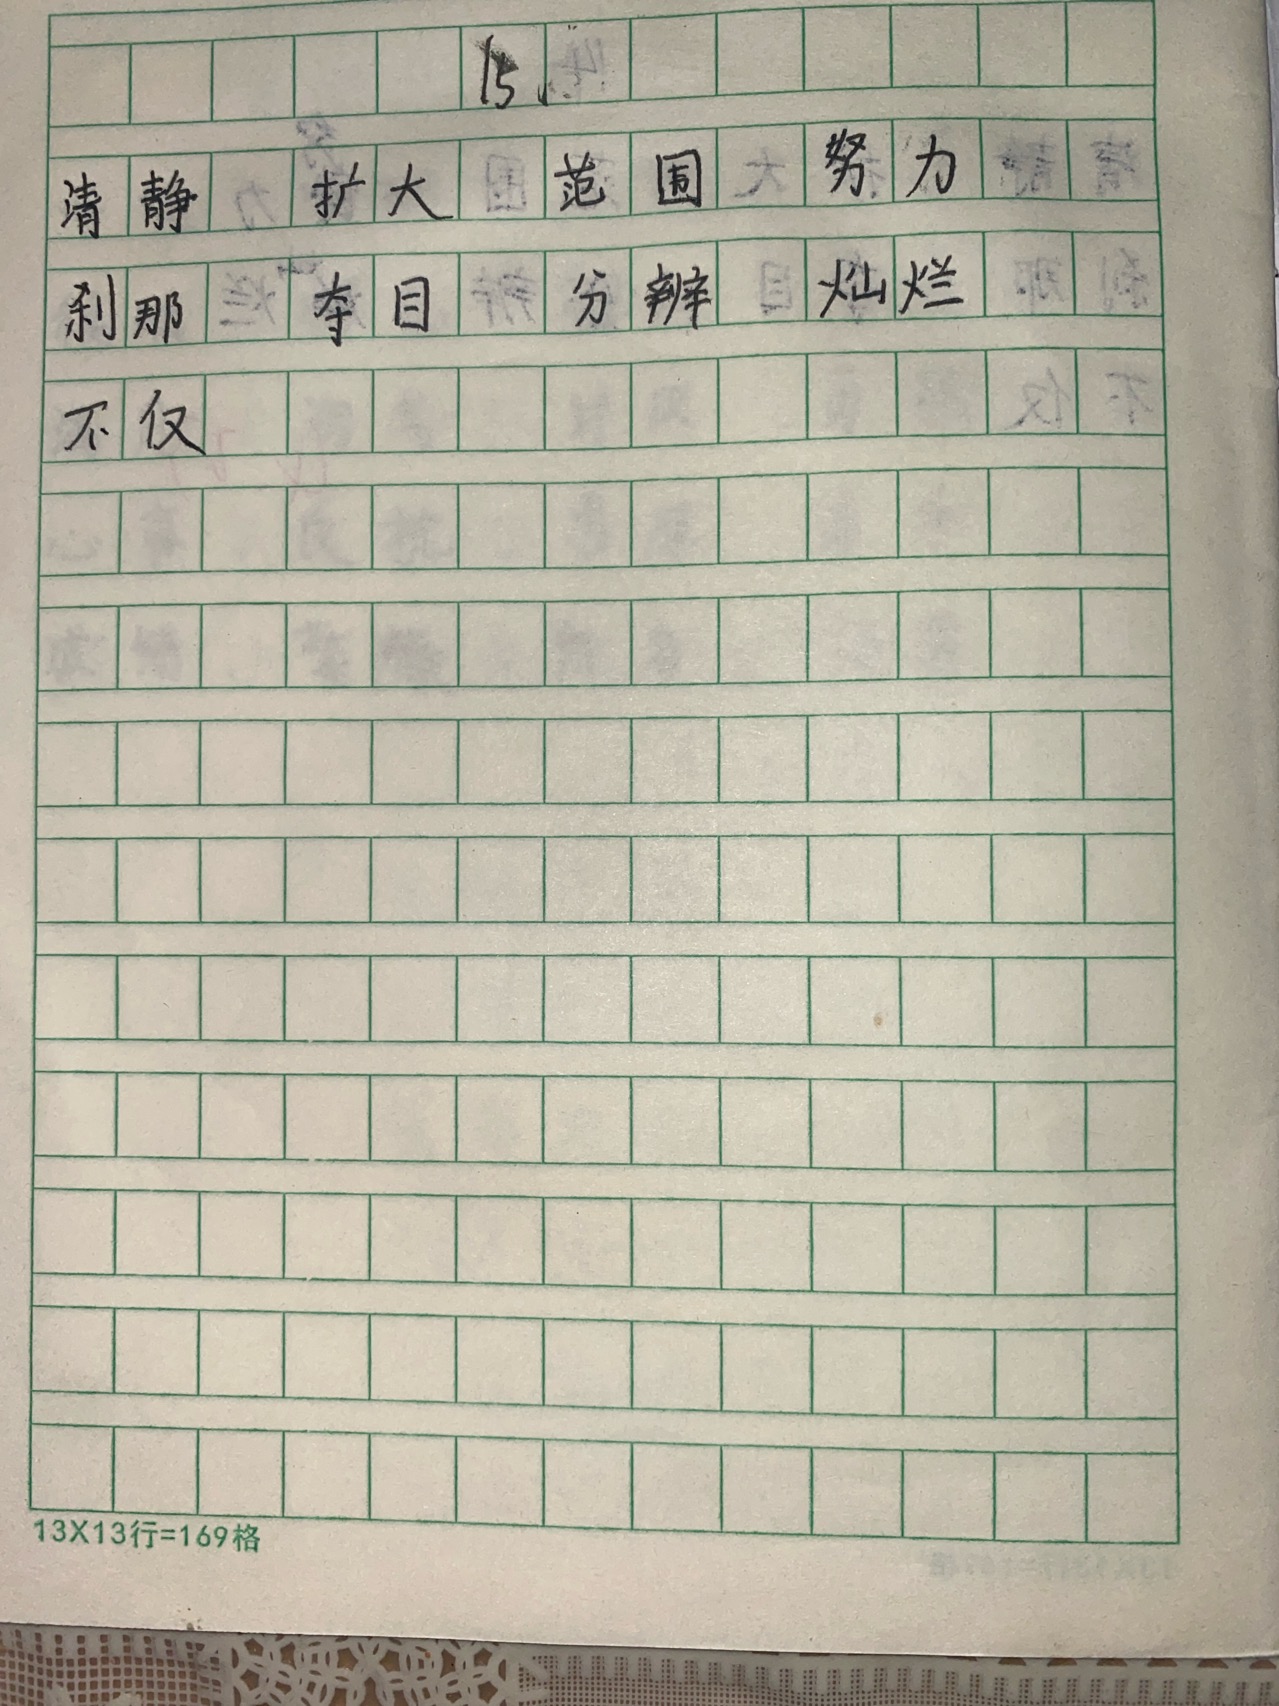 15、
清静 扩大 范围 努力
刹那 夺目 分辨 灿烂
不仅
13X13行=169格